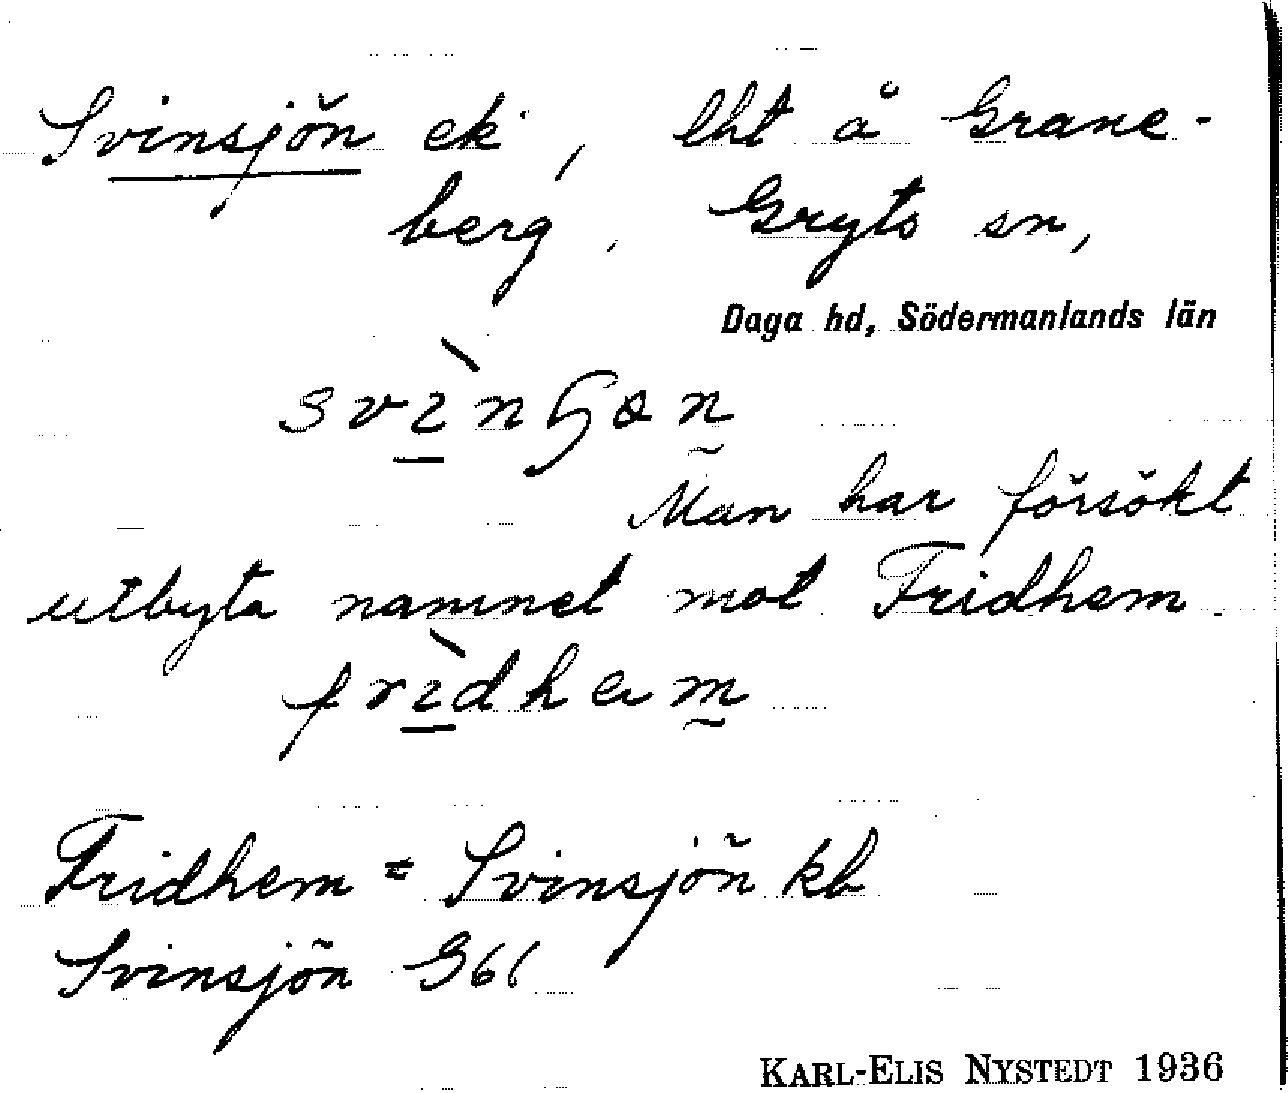 Svinsjön ek, lht å Grane-
berg. Gryts sn,
Daga hd, Södermanlands län
Man har försökt
utbyta namnet mot Fridhem.
Fridhem = Svinsjön kb
Svinsjön G66
KARL-ELIS NYSTEDT 1936